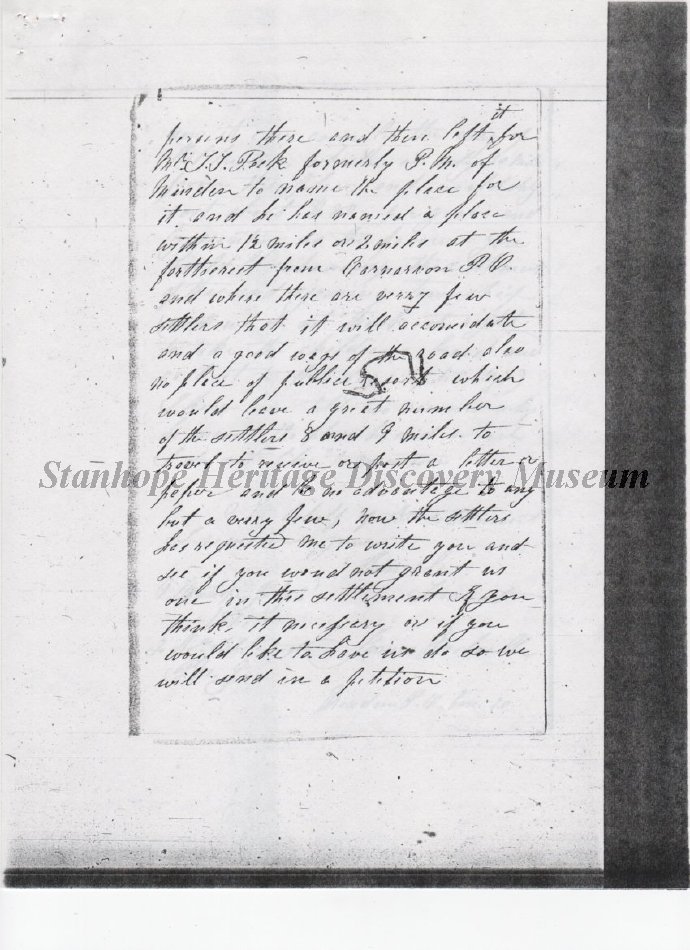 persons there and then left it for
Mr J.J. Peck formerly P.M. of
Minden to name the place for
it and he has named a place
within 1½ miles or 2 miles at the
fartherest from Carnarvon P.O.
and where there are verry few
settlers that it will accomidate
and a good ways of the road also
no place of publice resort which
would leave a great number
of the settlers 8 and 9 miles to
travel to receive or post a letter or
Stanhope Heritage Discovery Museum
peper and be no advantage to any
but a verry few, now the settlers
has requested me to write you and
see if you woud not grant us
one in this settlement If you
think it necessary or if you
would like to have us do so we
will send in a petition